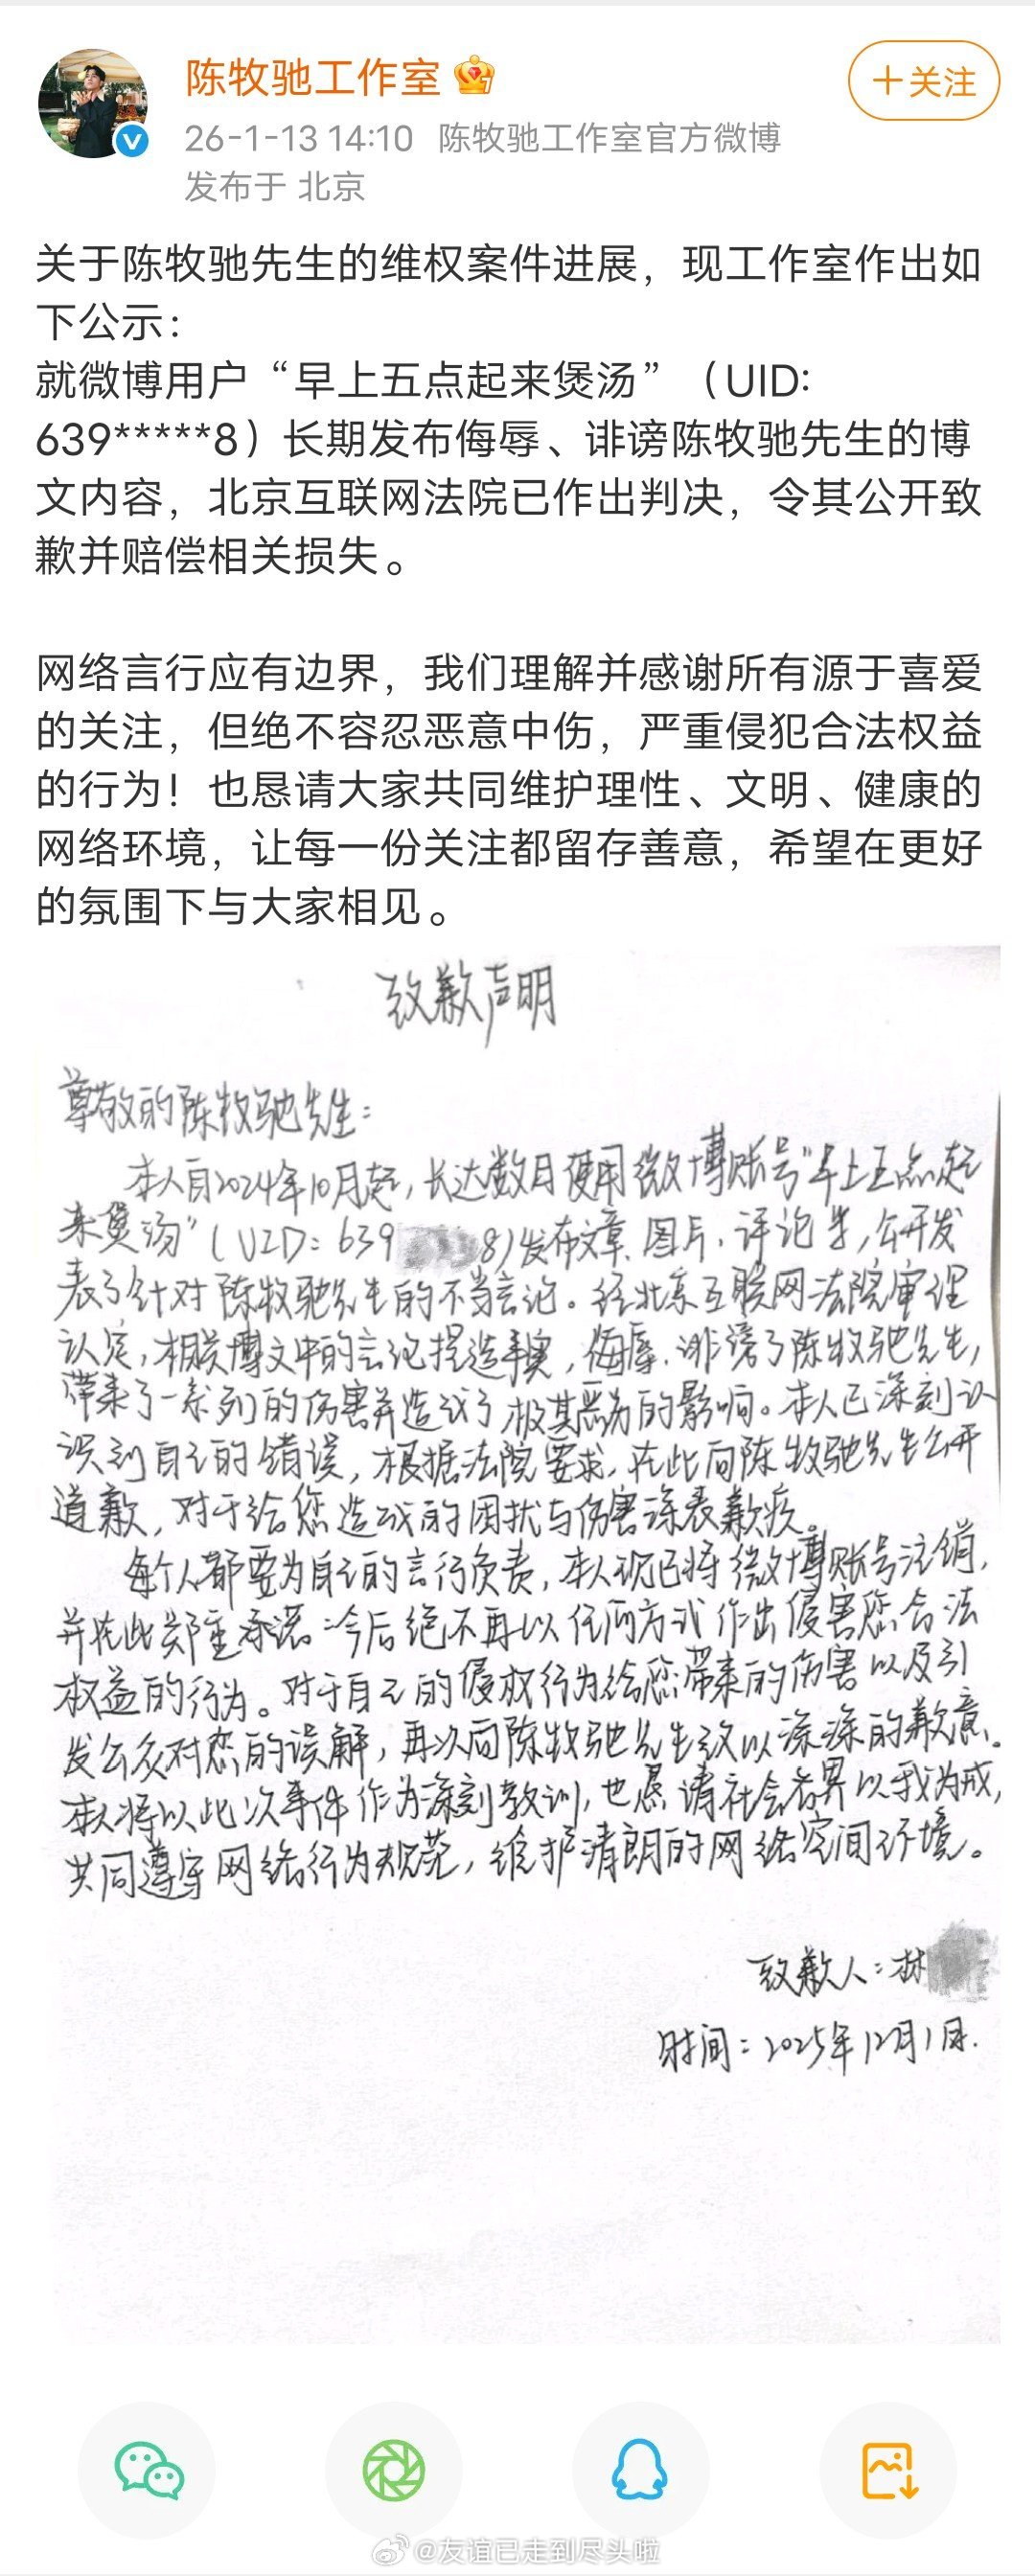 陈牧驰工作室
+关注
26-1-13 14:10 陈牧驰工作室官方微博
发布于 北京
关于陈牧驰先生的维权案件进展，现工作室作出如
下公示：
就微博用户“早上五点起来煲汤”（UID:
639*****8）长期发布侮辱、诽谤陈牧驰先生的博
文内容，北京互联网法院已作出判决，令其公开致
歉并赔偿相关损失。
网络言行应有边界，我们理解并感谢所有源于喜爱
的关注，但绝不容忍恶意中伤，严重侵犯合法权益
的行为！也恳请大家共同维护理性、文明、健康的
网络环境，让每一份关注都留存善意，希望在更好
的氛围下与大家相见。
致歉声明
尊敬的陈牧驰先生：
本人自2024年10月起，长达数月使用微博账号“早上五点起
来煲汤”（UID：639 8）发布文章、图片、评论等，公开发
表了针对陈牧驰先生的不当言论。经北京互联网法院审理
认定，相关博文中的言论捏造事实，侮辱、诽谤了陈牧驰先生，
带来了一系列的伤害并造成了极其恶劣的影响。本人已深刻认
识到自己的错误，根据法院要求，在此向陈牧驰先生公开
道歉，对于给您造成的困扰与伤害深表歉疚。
每个人都要为自己的言行负责，本人现已将微博账号注销，
并在此郑重承诺：今后绝不再以任何方式作出侵害您合法
权益的行为。对于自己的侵权行为给您带来的伤害以及引
发公众对您的误解，再次向陈牧驰先生致以深深的歉意。
本人将以此次事件作为深刻教训，也恳请社会各界以我为戒，
共同遵守网络行为规范，维护清朗的网络空间环境。
致歉人：林
时间：2025年12月1日.
@友谊已走到尽头啦